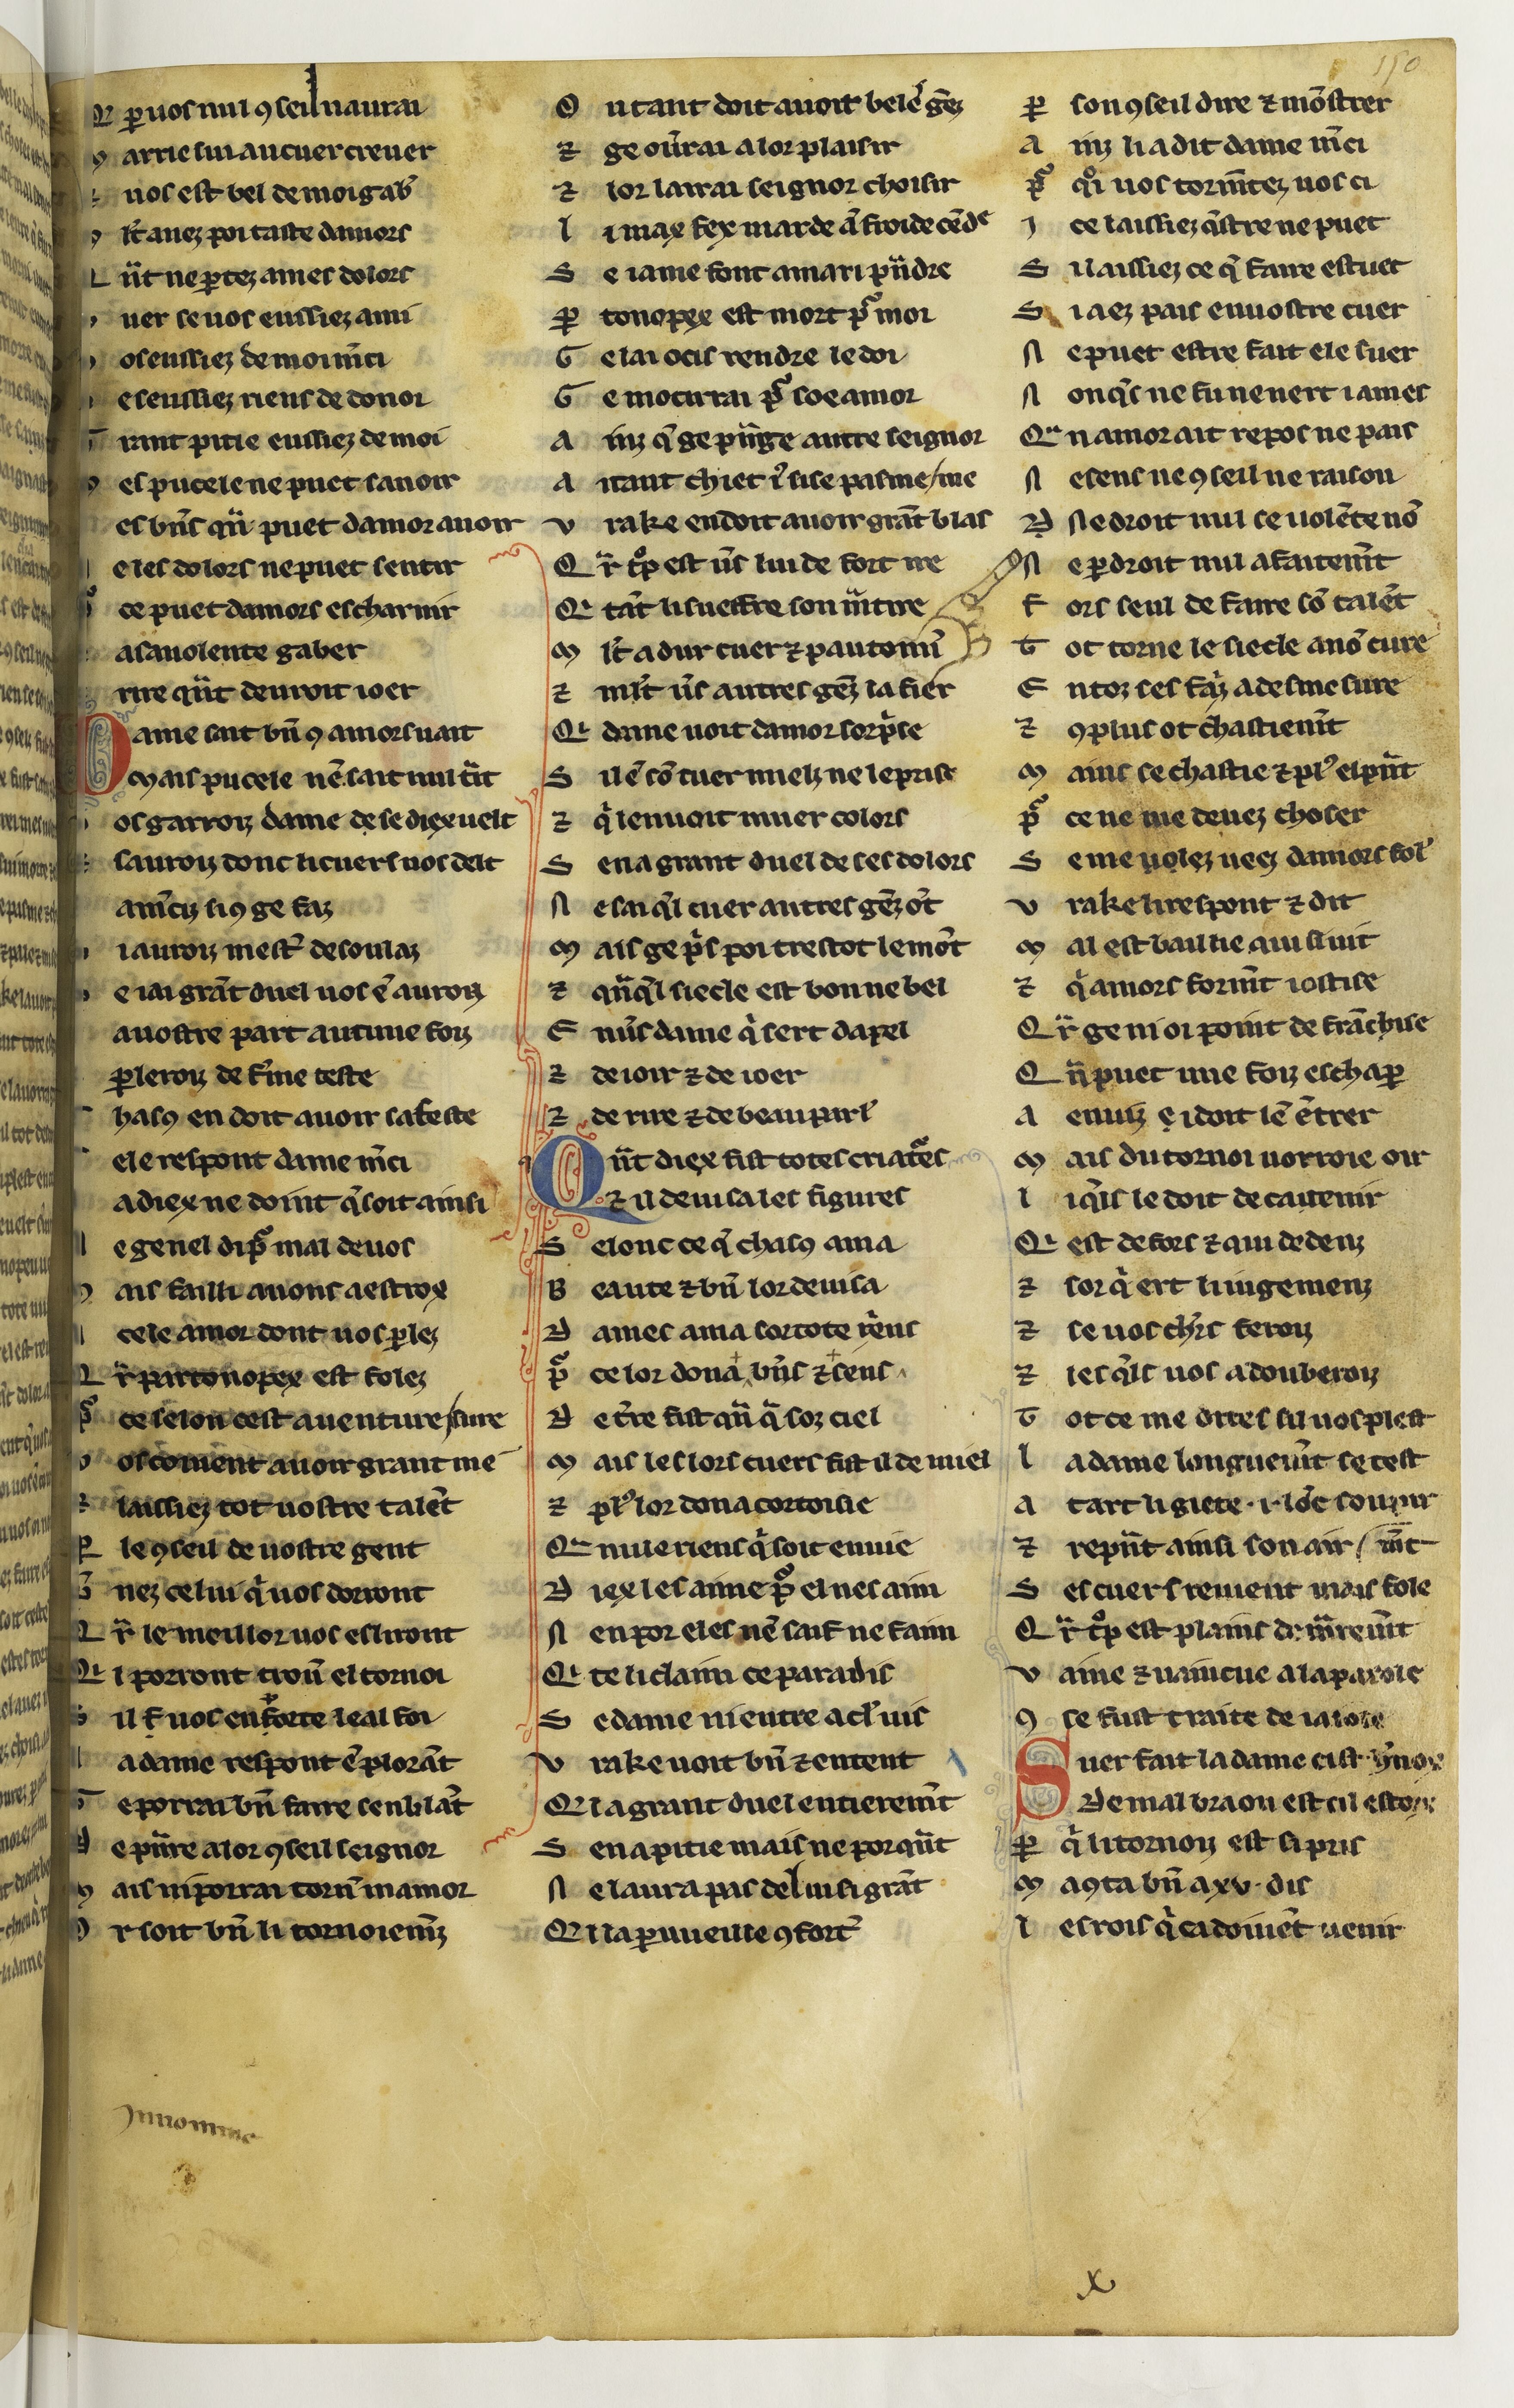 150
Q' ꝑ uos nul ꝯseil naurai
M arrie sui au cuer creuer
Z uos est bel de moi gab'
M lt' auez poi taste damors
Q ñt ne ꝑtez ames dolors
uer se uos eussiez ami
os eussiez de moi m̄ci
e seussiez riens de donoi
G rant pitie eussiez de moi
M es pucele ne puet sauoir
es bñs qñ puet damor auoir
e les dolors ne puet sentir
P' ce puet damors escharnir
a sa uolente gaber
rire qñt deuroit ioer
D ame sait bñ ꝯ amors uait
Mais pucele nē sait nul t'it
os garroiz dame de se diex uelt
sauroiz donc li cuers uos delt
am̄ciz si ꝯ ge faz
i auroiz mest' de soulaz
e iai grāt duel uos ē auroiz
a uostre part aucune foiz
ꝑleroiz de fine teste
hasꝯ en doit auoir sa feste
ele respont dame m̄ci
a diex ne doint q̄ soit ainsi
e ge nel di p' mal de uos
M ais failli auons a estrox
cele amor dont uos ꝑlez
Q r̄ partonopex est folez
P' ce selon cest auenture /sure
os couient auoir grant me
Z laissiez tot uostre talēt
P le ꝯseil de uostre gent
nez celui q̇ uos dorront
Q r̄ le meillor uos esliront
Q' l porront trou' el tornoi
S il f' uos en forte leal foi
L a dame respont ē plorāt
G e porrai bñ faire senblāt
D e pñre a lor ꝯseil seignor
M ais ni porrai torñ mamor
O r soit bñ li tornoiem̄z
Innomine
O u tant doit auoir bele gēz
Z ge ou'rai a lor plaisir
Z lor lairai seignor choisir
L i max fex marde ā froide cēd'
S e iame font a mari pñdre
P tonopex est mort p' moi
G e lai ocis rendre le doi
G e mocirrai p' soe amor
A inz q̄ ge pñge autre seignor
A itant chiet ī si se pasme /me
V rake en doit auoir grāt blas
Q r̄ t'p est ūs lui de fort ire
Q' tāt li sueffre son m̄tire
M lt' a dur cuer Z pautoni'
Z ml't ūs autres gēz la fier
Q' dame uoit damor sorp'se
S il ē sō cuer mielz ne le prise
Z q̇ len uoit muer colors
S en a grant duel de ses dolors
N e sai q̄l cuer autres gēz ōt
M ais ge p's poi trestot le mōt
Z qñq̄l siecle est bon ne bel
E nūs dame q̇ sert dapel
Z de ioir Z de ioer
Z de rire Z de beau parl'
Q ñt diex fist totes criat'es
Z il deuisa les figures
S elonc ce q̄ chasꝯ ama
B eaute Z bñ lor deuisa
D ames ama sor tote r'ens
P' ce lor dona bñs Z sens
D e t're fist qñ q̄ soz ciel
M ais les lors cuers fist il de miel
Z pl' lor dona cortoisie
Q' nule riens q̇ soit en uie
D iex les aime p' el nes aim
N en por eles nē sai f' ne faim
Q' te li claim ce paradis
S e dame ni entre a cl' uis
V rake uoit bñ Z entent
Q' la grant duel entierem̄t
S en a pitie mais ne por qñt
N e laura pas de lui si grāt
Q' l la ꝑ uueille ꝯfort'
P son ꝯseil dire Z mōstrer
A inz li a dit dame m̄ci
P' q̊i uos torm̄tez uos ci
I ce laissiez q̄stre ne puet
S i laissiez ce q̄ faire estuet
S i aez pais en uostre cuer
N e puet estre fait ele suer
N onq̄s ne fu ne nert iames
Q' n amor ait repos ne pais
N e sens ne ꝯseil ne raison
D ne droit nul se uolēte nō
N e ꝑ droit nul afaitem̄t
F ors seul de faire sō talēt
T ot torne le siecle a nō cure
E n toz ses faiz a desmesure
Z ꝯ plus ot chastiem̄t
M ains se chastie Z pl' espñt
P' ce ne me deuez choser
S e me uolez ueez damors fol'
V rake li respont Z dit
M al est baillie qui suit
Z q̇ amors form̄t iostise
Q r̄ ge ni oi point de frāchise
Q n puet une foiz eschap
A enuiz e i doit lē ētrer
M ais du tornoi uorroie oir
L iq̄ls le doit de ca tenir
Q' est defors Z qui dedenz
Z sor q̇ ert li iugemenz
Z se uos ch'rs feroiz
Z les q̄ls uos adouberoiz
T ot ce me dites sil uos plest
L a dame longuem̄t se test
A tart li giete .i. lōc soupir
Z repñt ainsi son air /m̄t
S es cuers reuient mais fole
Q r̄ t'p est plains de m̄rem̄t
V aine Z uaincue a la parole
ꝯ se fust traite de iaiole
S uer fait la dame cist
De mal braon est cil estoix
P q̇ li tornoiz est si pris
M a ꝯta bñ a .xv. dis
L es rois q̇ ca doiuēt uenir
X